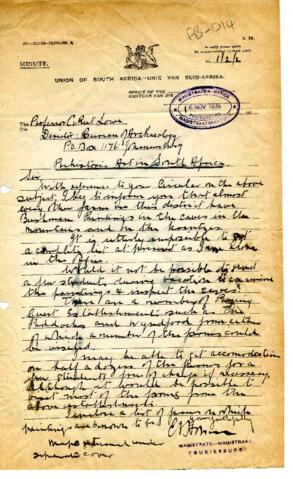 FB-D14
MINUTE.
1/2/2
UNION OF SOUTH AFRICA.—UNIE VAN SUID-AFRIKA.
OFFICE OF THE
KANTOOR VAN DIE
MAGISTRATE'S OFFICE
6 NOV 1936
The Professor C. Van Riet Lowe
Director Bureau of Archaeology
P.O. Box 1176 Johannesburg
Prehistoric Art in South Africa.
Sir,
With reference to your Circular on the above
subject, I beg to inform you that almost
every farm in this district have
Bushman Paintings in the caves in the
mountains and in the
It is utterly impossible to
a complete list at present as I am alone
in the office.
Would it not be possible to send
a few students during vacation to examine
the paintings & inspect the caves?
There are a number of Paying
Guest Establishments such as the
and Wyndford from either
of which a number of the farms could
be visited.
I may be able to get accommodation
on half a dozen of the farms for a
few students free of charge if necessary,
although it would be possible to
visit most of the farms from the
above establishments.
I enclose a list of farms on which
paintings are known to be
Yours faithfully
Maps returned under
separate cover
MAGISTRATE-MAGISTRAAT
FOURIESBURG